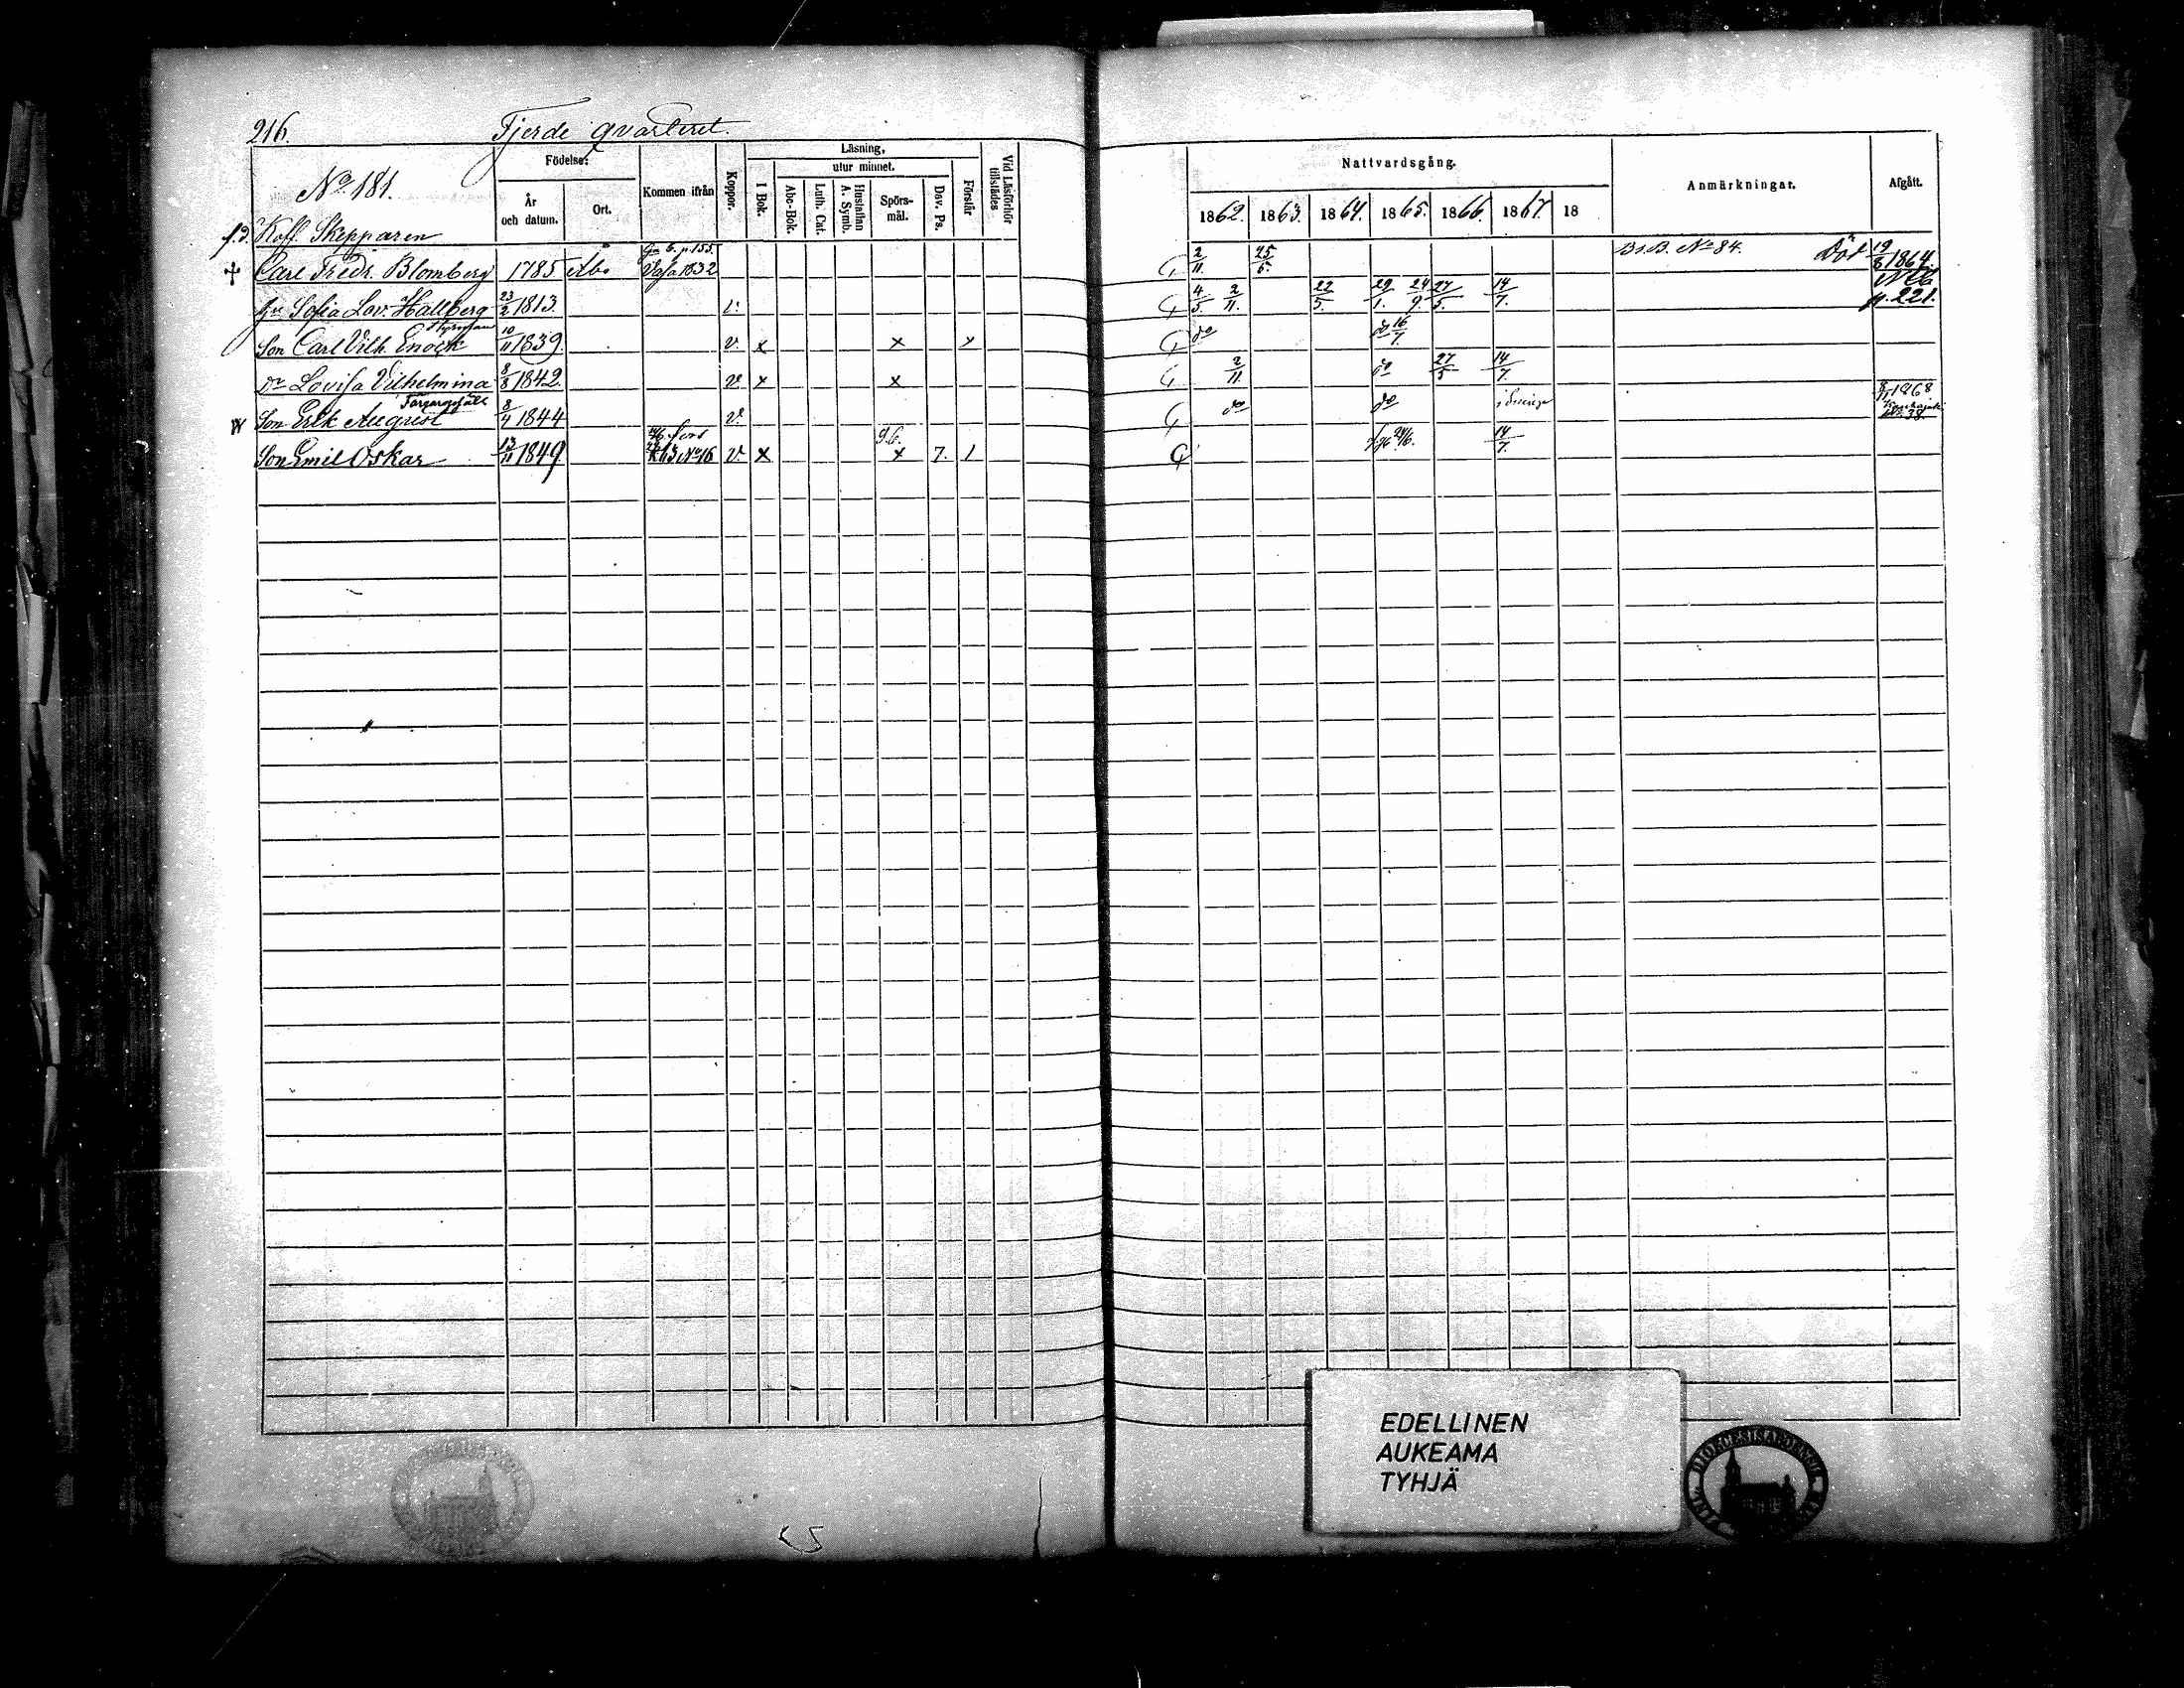 216.
Fjerde qvarteret.
No 181.
Födelse:
År och datum.
Ort.
Kommen ifrån
Koppor.
Läsning,
I Bok.
utur minnet.
Abc-Bok.
Luth. Cat.
Hustaflan A. Symb.
Spörsmål.
Dav. Ps.
Förstår
Vid Läsförhör tillstädes
Nattvardsgång.
1862. 1863. 1864. 1865. 1866. 1867. 18
Anmärkningar.
Afgått.
f.d. Koff. Skepparen
Carl Fredr. Blomberg 1785 Åbo p. 155. Vasa 1832 2/11 25/5. No 84. Död 19/8 1864.
Sofia Lov. Hallberg 23/2 1813. v. 4/5. 2/11. 22/5. 29/1. 24/9. 27/5. 14/7. p. 221.
Styrman
Son Carl Vilh. Enock 10/11 1839. v. x x x do do 16/7
Dr Lovisa Vilhelmina 8/8 1842. v. x x 2/11. do 27/5 14/7.
Son Erik August 8/4 1844 v. do do i Sverige 1868
Son Emil Oskar 13/11 1849 63 No 16 v. x x 7. 1 24/6. 14/7.
EDELLINEN
AUKEAMA
TYHJÄ